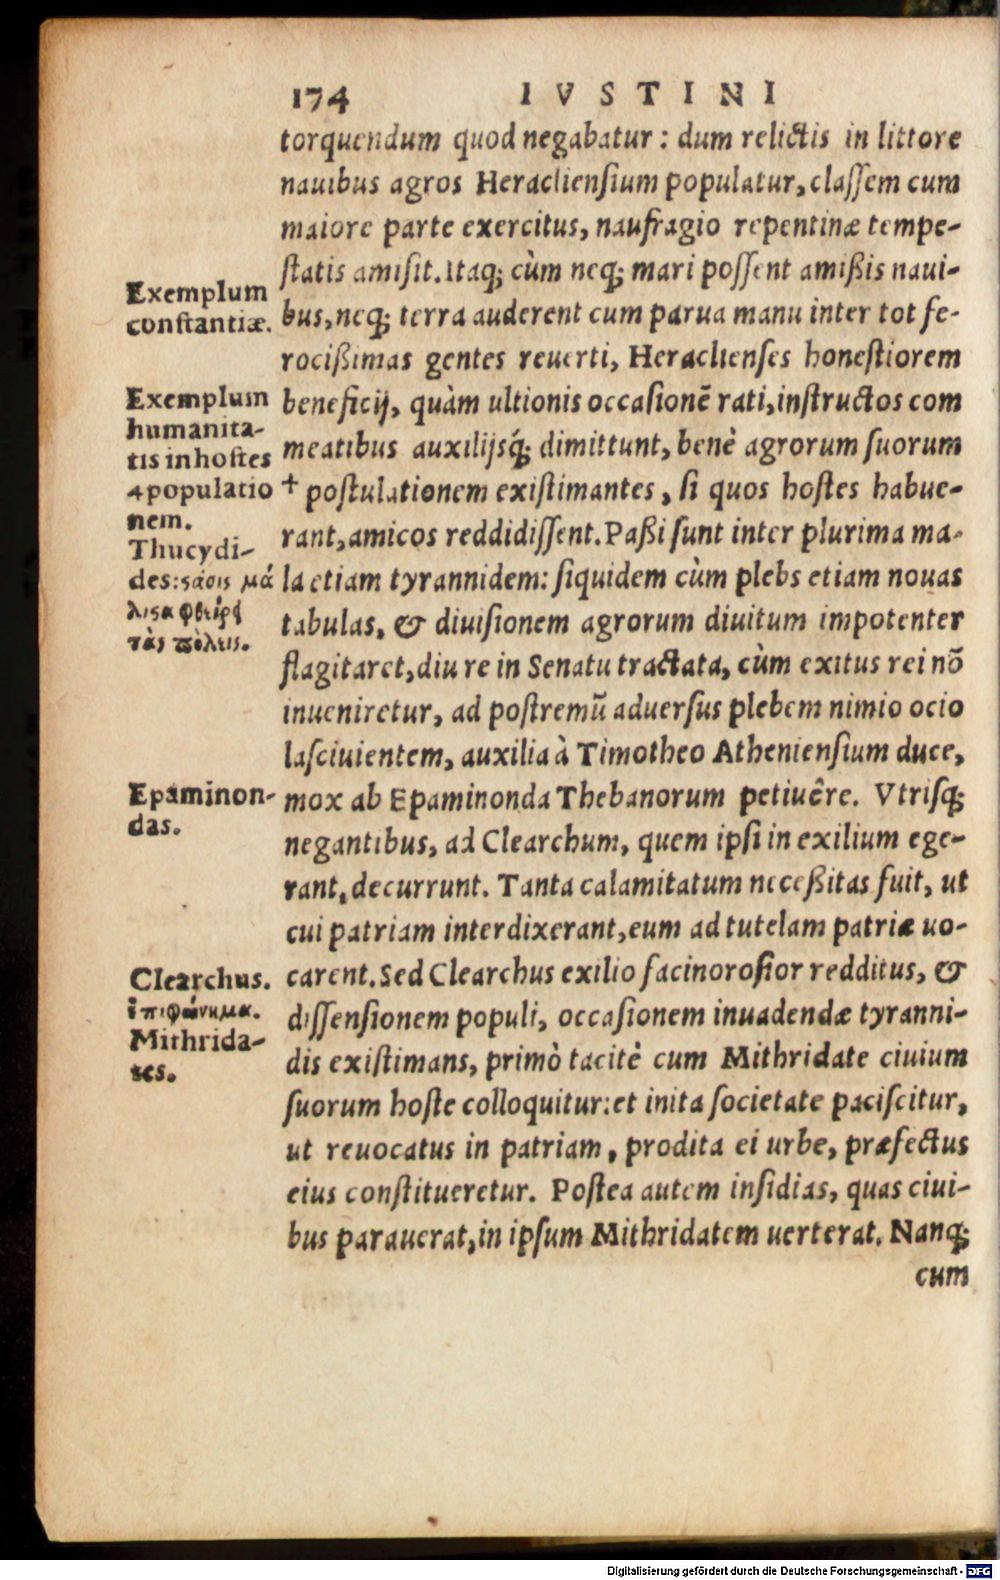 174 IVSTINI
torquendum quod negabatur : dum relictis in littore
nauibus agros Heracliensium populatur, classem cum
maiore parte exercitus, naufragio repentinæ tempe-
statis amisit. Itaq; cùm neq; mari possent amißis naui-
bus, neq; terra auderent cum parua manu inter tot fe-
rocißimas gentes reuerti, Heraclienses honestiorem
beneficij, quàm ultionis occasionē rati, instructos com
meatibus auxilijsq́; dimittunt, benè agrorum suorum
+ postulationem existimantes, si quos hostes habue-
rant, amicos reddidissent. Paßi sunt inter plurima ma-
la etiam tyrannidem: siquidem cùm plebs etiam nouas
tabulas, & diuisionem agrorum diuitum impotenter
flagitaret, diu re in Senatu tractata, cùm exitus rei nō
inueniretur, ad postremū aduersus plebem nimio ocio
lasciuientem, auxilia à Timotheo Atheniensium duce,
mox ab Epaminonda Thebanorum petiuêre. Vtrisq;
negantibus, ad Clearchum, quem ipsi in exilium ege-
rant, decurrunt. Tanta calamitatum neceßitas fuit, ut
cui patriam interdixerant, eum ad tutelam patriæ uo-
carent. Sed Clearchus exilio facinorosior redditus, &
dissensionem populi, occasionem inuadendæ tyranni-
dis existimans, primò tacitè cum Mithridate ciuium
suorum hoste colloquitur: et inita societate paciscitur,
ut reuocatus in patriam, prodita ei urbe, præfectus
eius constitueretur. Postea autem insidias, quas ciui-
bus parauerat, in ipsum Mithridatem uerterat. Nanq;
cum
Exemplum
constantiæ.
Exemplum
humanita-
tis in hostes
+populatio
nem.
Thucydi-
des: ϛάσις μά
λιϛα φθείρει
τὰς πόλεις.
Epaminon-
das.
Clearchus.
ἐπιφώνημα.
Mithrida-
tes.
Digitalisierung gefördert durch die Deutsche Forschungsgemeinschaft - DFG